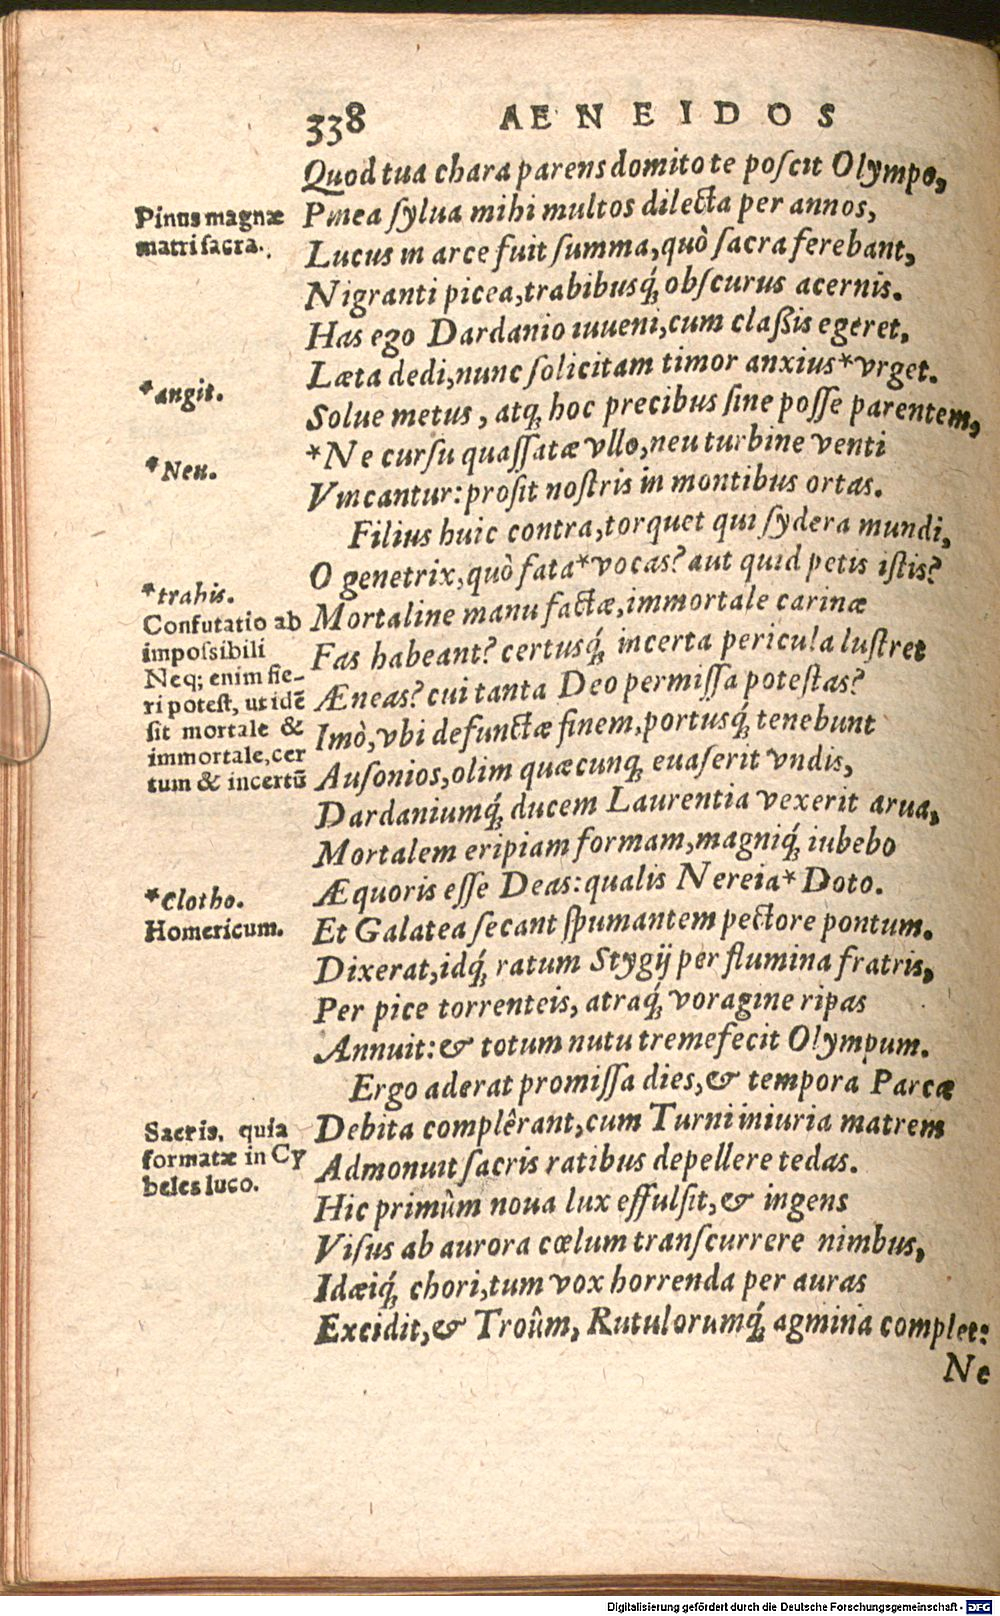 338 AENEIDOS
Quod tua chara parens domito te poſcit Olympo,
Pinus magnæ
matri ſacra.
Pinea ſylua mihi multos dilecta per annos,
Lucus in arce fuit ſumma, quò ſacra ferebant,
Nigranti picea, trabibusq́; obſcurus acernis.
Has ego Dardanio iuueni, cum claßis egeret,
Læta dedi, nunc ſolicitam timor anxius * vrget.
* angit.
Solue metus, atq; hoc precibus ſine poſſe parentem,
* Ne curſu quaſſatæ vllo, neu turbine venti
* Neu.
Vincantur: proſit noſtris in montibus ortas.
Filius huic contra, torquet qui ſydera mundi,
O genetrix, quò fata * vocas? aut quid petis iſtis?
* trahis.
Mortaline manu factæ, immortale carinæ
Fas habeant? certusq́; incerta pericula luſtret
Æneas? cui tanta Deo permiſſa poteſtas?
Confutatio ab
impoſsibili
Neq; enim fie-
ri poteſt, ut idē
ſit mortale &
immortale, cer
tum & incertū
Imò, vbi defunctæ finem, portusq́; tenebunt
Auſonios, olim quæcunq; euaſerit vndis,
Dardaniumq́; ducem Laurentia vexerit arua,
Mortalem eripiam formam, magniq́; iubebo
Æquoris eſſe Deas: qualis Nereia * Doto.
* Clotho.
Homericum.
Et Galatea ſecant ſpumantem pectore pontum.
Dixerat, idq́; ratum Stygij per flumina fratris,
Per pice torrenteis, atraq́; voragine ripas
Annuit: & totum nutu tremefecit Olympum.
Ergo aderat promiſſa dies, & tempora Parcæ
Debita complêrant, cum Turni iniuria matrem
Admonuit ſacris ratibus depellere tedas.
Sacris. quia
formatæ in Cy
beles luco.
Hic primùm noua lux effulſit, & ingens
Viſus ab aurora cœlum tranſcurrere nimbus,
Idæiq́; chori, tum vox horrenda per auras
Excidit, & Troûm, Rutulorumq́; agmina complet:
Ne
Digitalisierung gefördert durch die Deutsche Forschungsgemeinschaft - DFG